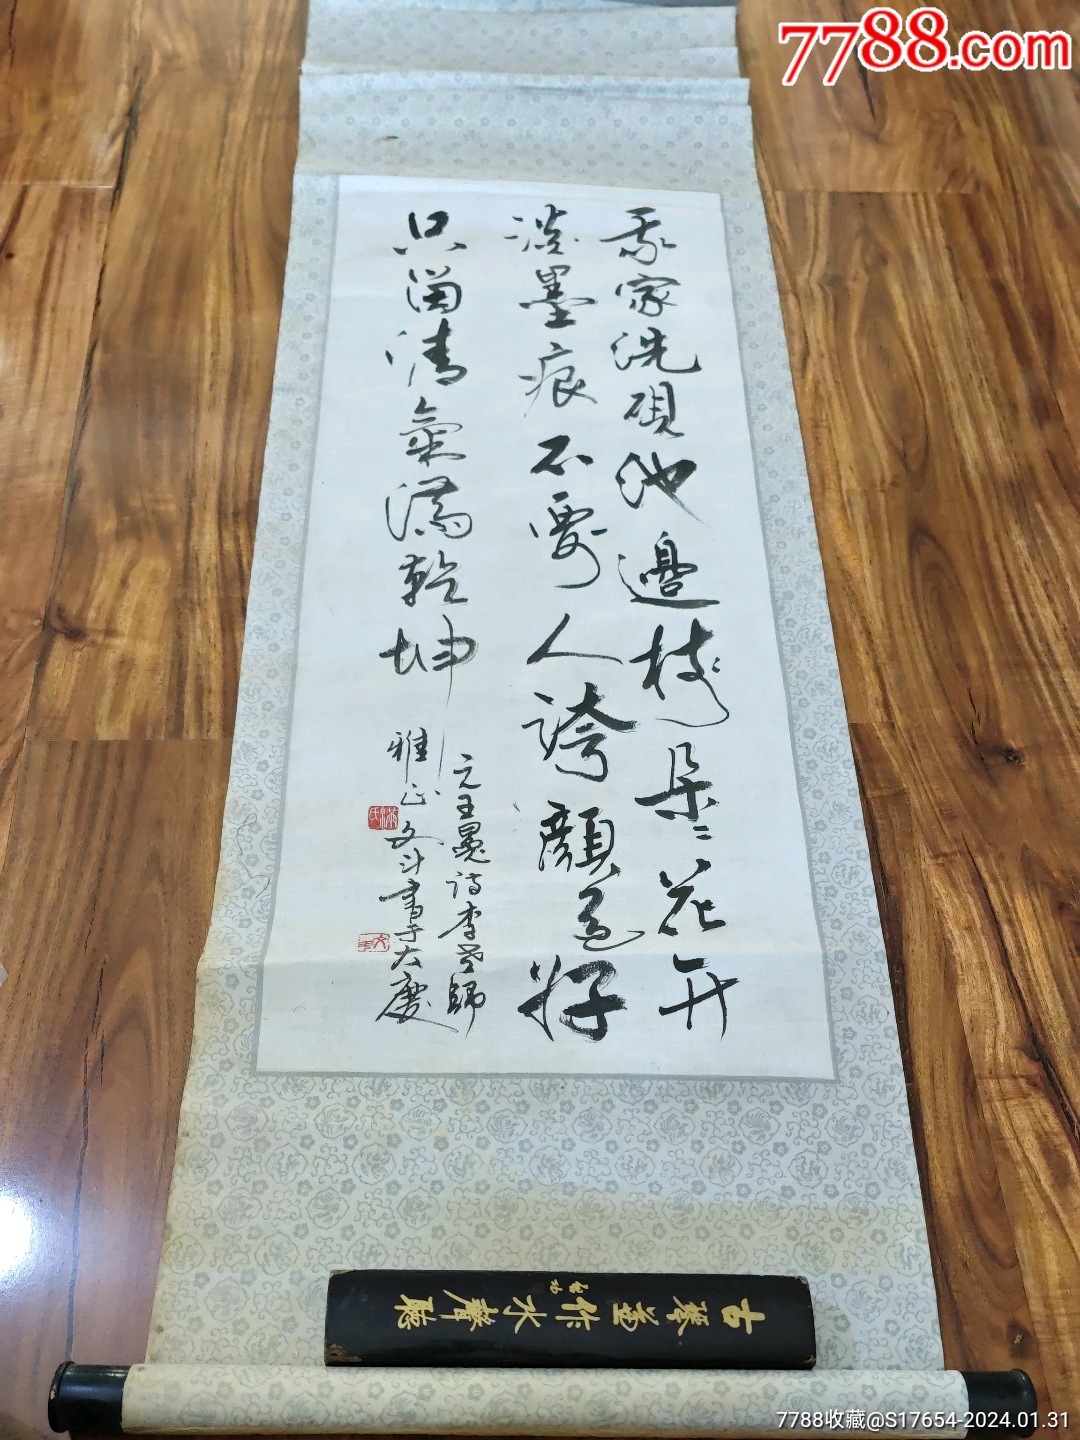 我家洗硯池邊樹朵〻花开
淡墨痕不要人誇顏色好
只留清氣滿乾坤
元王冕诗李老師
雅正 文斗書于大慶
古琴作水聲聽
7788.com
7788收藏@S17654-2024.01.31